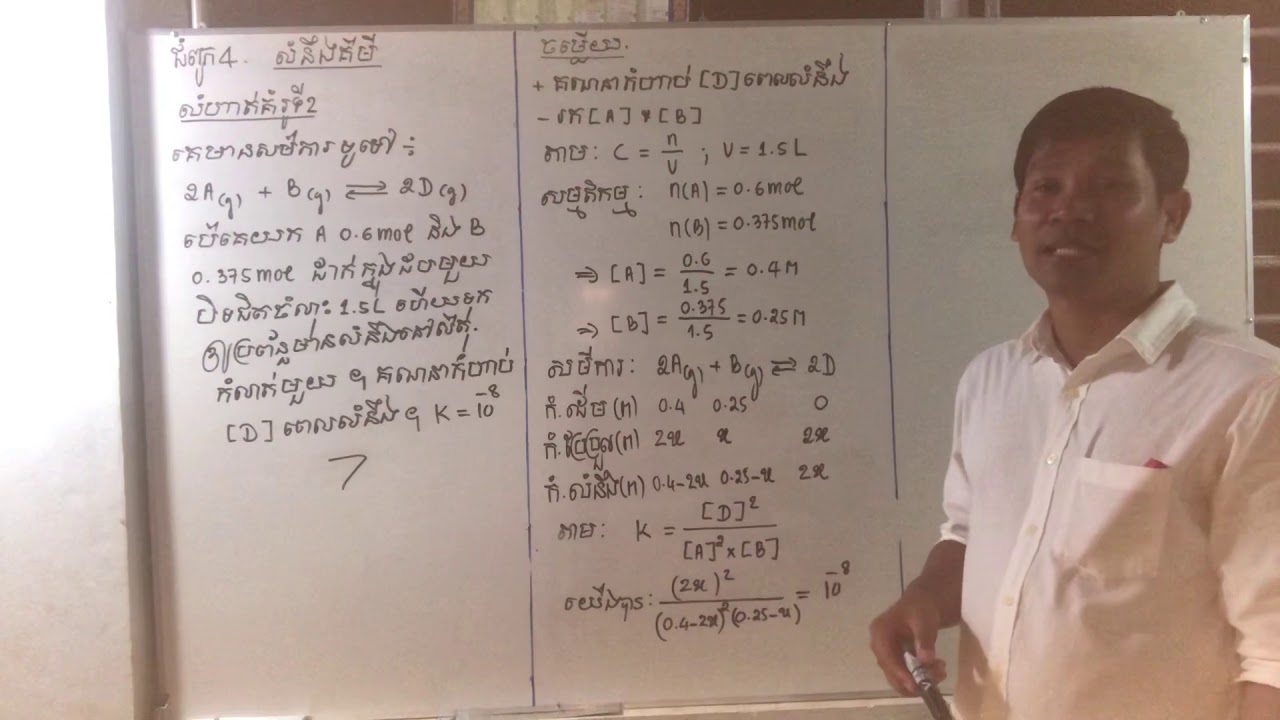 ជំពូក4. លំនឹងគីមី
លំហាត់គំរូទី2
គេមានសមីការទូទៅ :
2A(g) + B(g) ⇌ 2D(g)
បើគេយក A 0.6mol និង B
0.375mol ដាក់ក្នុងដបមួយ
បិទជិតចំណុះ 1.5L ហើយទុក
ឲ្យប្រព័ន្ធមានលំនឹងនៅសីតុ.
កំណត់មួយ ។ គណនាកំហាប់
[D] ពេលលំនឹង ។ K = 10⁻⁸
ចម្លើយ.
+ គណនាកំហាប់ [D] ពេលលំនឹង
- រក [A] & [B]
តាម: C = n/V ; V = 1.5L
សម្មតិកម្ម: n(A) = 0.6mol
n(B) = 0.375mol
⇒ [A] = 0.6/1.5 = 0.4M
⇒ [B] = 0.375/1.5 = 0.25M
សមីការ: 2A(g) + B(g) ⇌ 2D
កំ.ដើម(M) 0.4 0.25 0
កំ.ប្រែប្រួល(M) 2x x 2x
កំ.លំនឹង(M) 0.4-2x 0.25-x 2x
តាម: K = [D]²/[A]²×[B]
យើងបាន: (2x)²/(0.4-2x)²(0.25-x) = 10⁻⁸